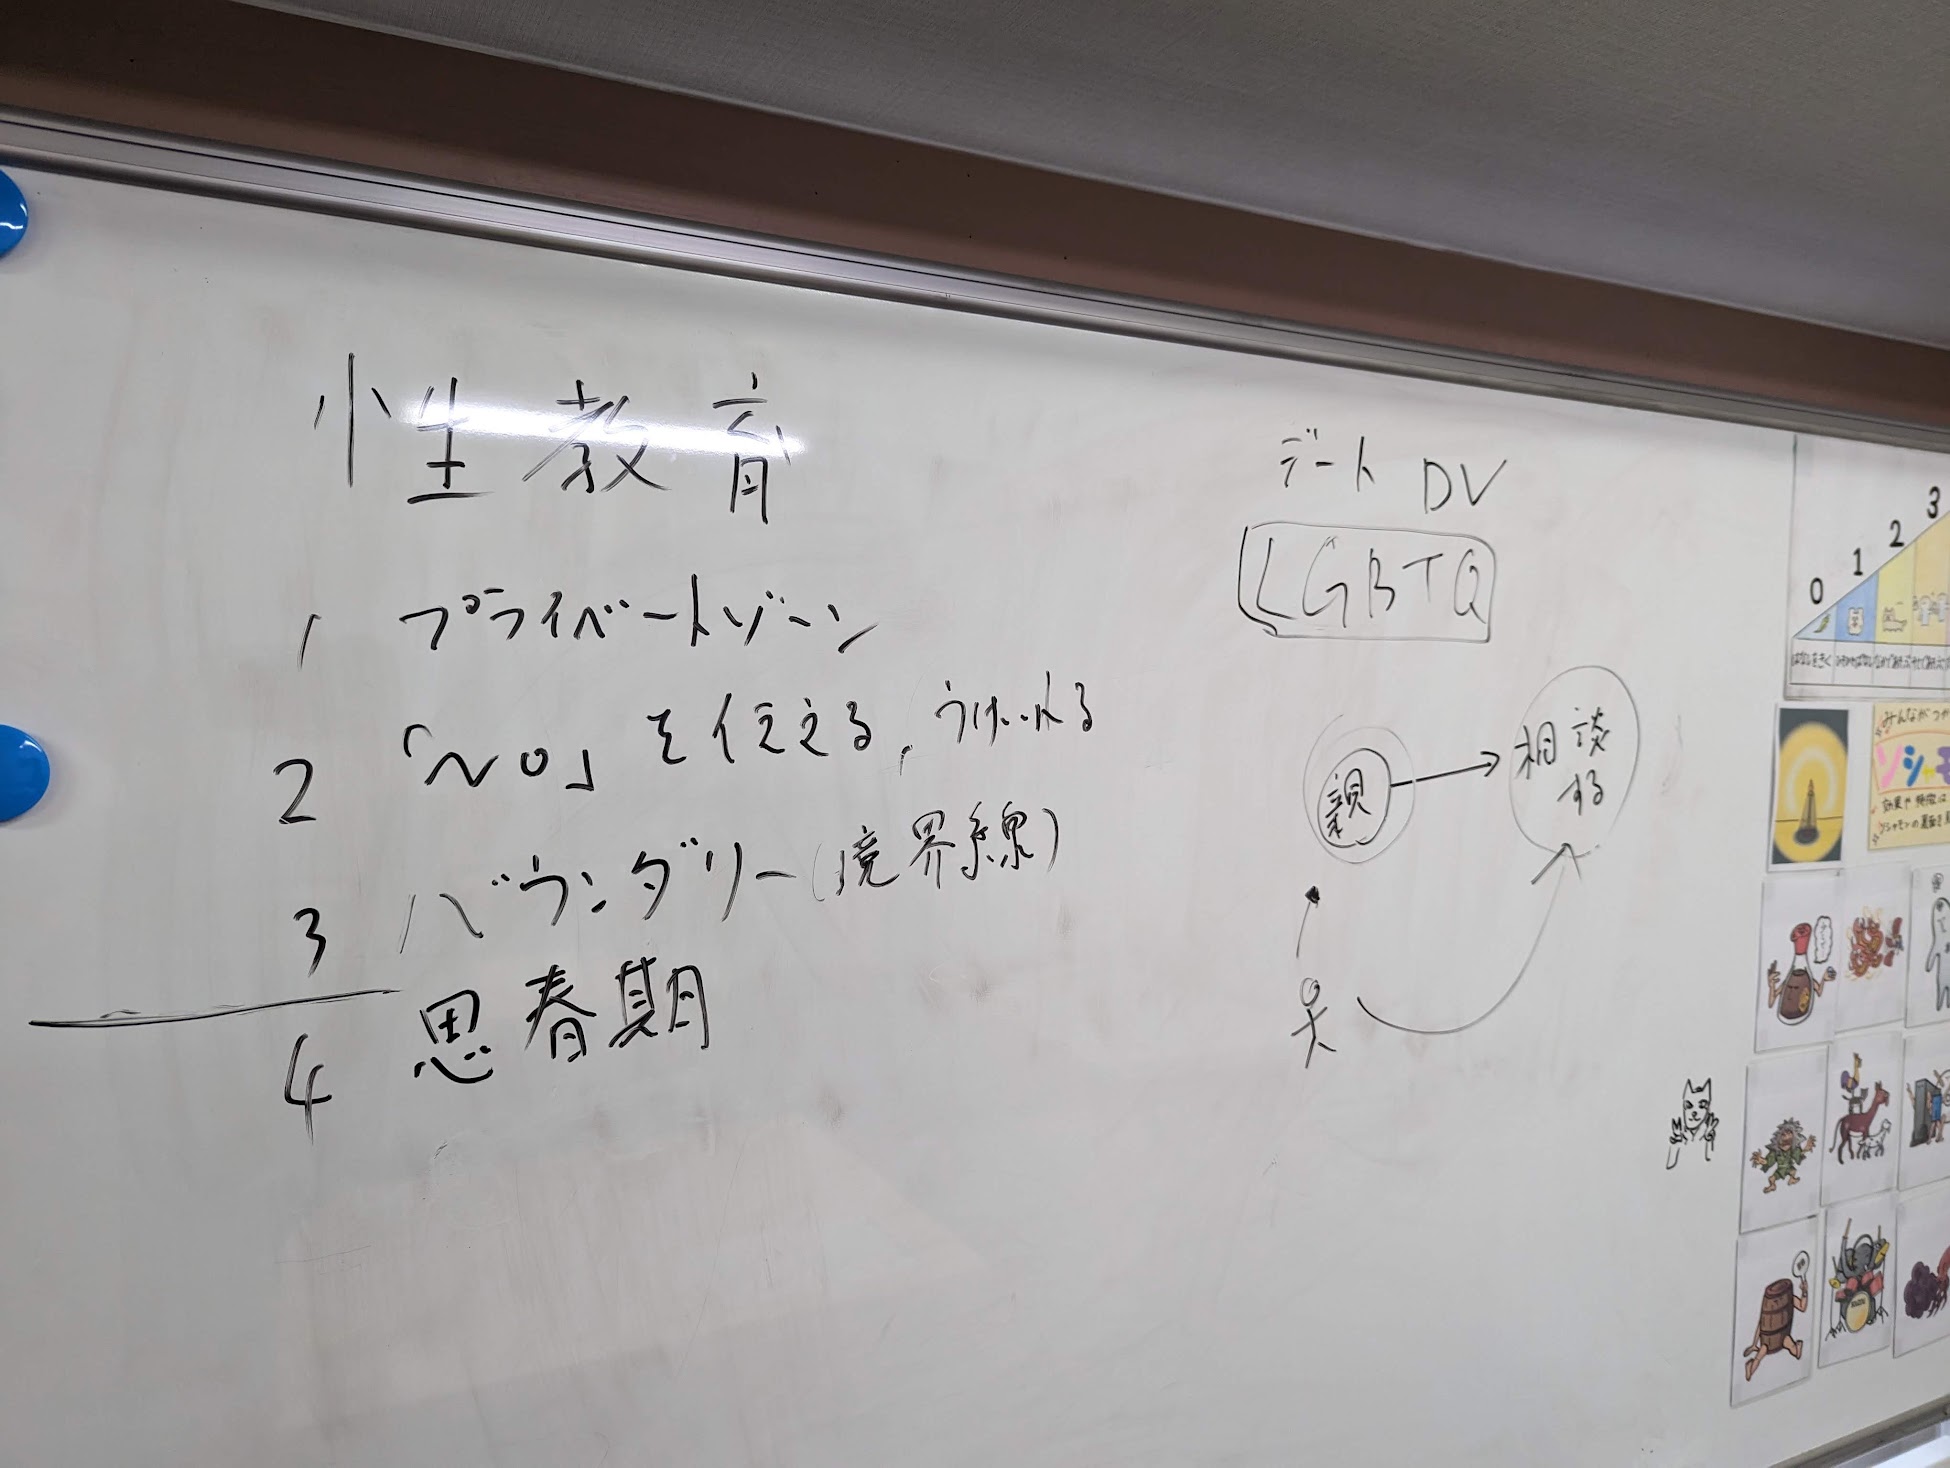 性教育
1 プライベートゾーン
2 「NO」を伝える、うけいれる
3 バウンダリー(境界線)
4 思春期
デートDV
LGBTQ
親
相談
する
0 1 2 3
みんながつか
ソシャモ
効果や特徴は